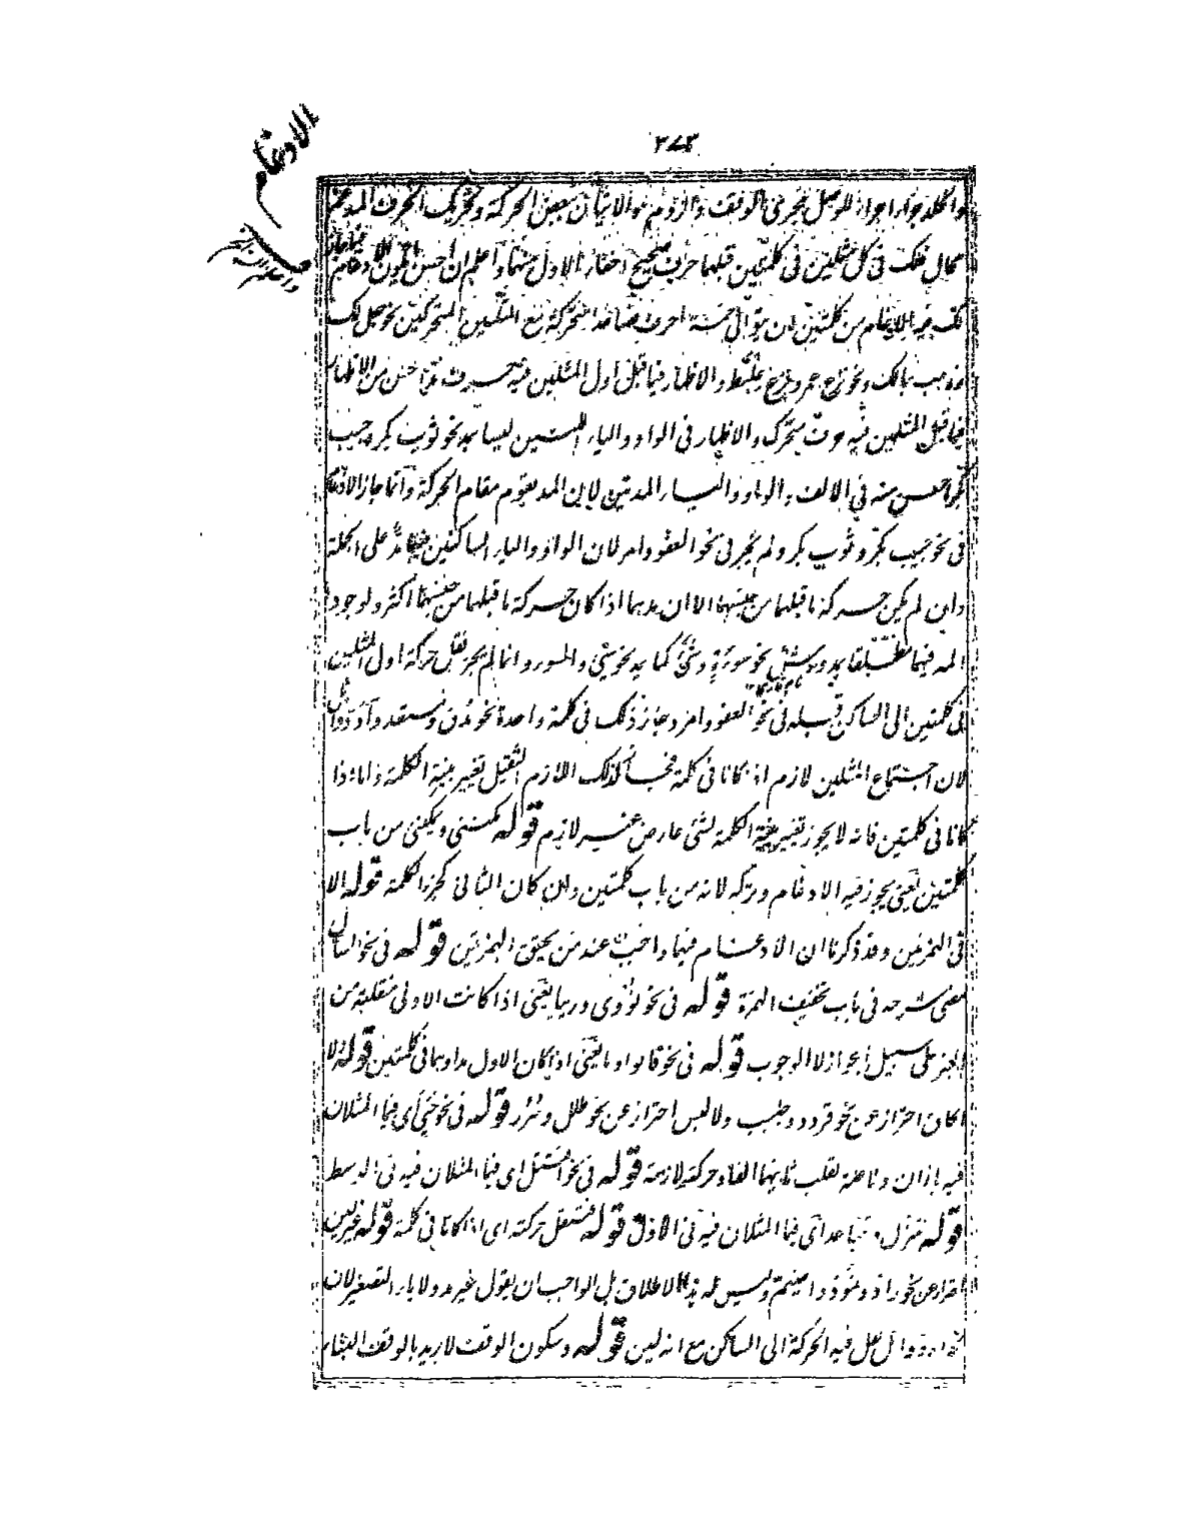 ٣٤٣
الادغام
اجراء للوصل مجرى الوقف والروم هو الاتيان ببعض الحركة وتحريك الحرف المدغم
محال فلك فى كل مثلين فى كلمتين قبلهما حرف صحيح اخفاء الاول منهما واعلم ان احسن ما يكون الادغام
من كلمتين ان يتوالى خمسة احرف فصاعدا متحركة مع المثلين المتحركين نحو جعل لك
وذهب بمالك ونحو نزع عمر ونزع علبط والاظهار فيما قبل اول المثلين فيه حرف مد احسن من الاظهار
فيما قبل المثلين فيه حرف متحرك والاظهار فى الواو والياء اللتين ليستا بمد نحو ثوب بكر وجيب
بكر احسن منه فى الالف والواو والياء المدتين لان المد يقوم مقام الحركة وانما جاز الادغام
فى نحو جيب بكر وثوب بكر ولم يجز فى نحو العفو وامر لان الواو والياء الساكنين فيهما مد على الجملة
وان لم يكن حركة ما قبلهما من جنسهما الا ان مدهما اذا كان حركة ما قبلهما من جنسهما اكثر ولوجود
المد فيهما مطلقا يمد ورش نحو سوءة وشىء كما يمد نحو سىء والسوء وانما لم يجز نقل حركة اول المثلين
فى كلمتين الى الساكن قبله فى نحو العفو وامر وجاز ذلك فى كلمة واحدة نحو مدق ومستعد
لان اجتماع المثلين لازم اذا كانا فى كلمة فجاز لذلك اللازم الثقيل تغيير بنية الكلمة واما اذا
كانا فى كلمتين فانه لا يجوز تغيير بنية الكلمة لشىء عارض غير لازم قوله مكننى ويمكننى من باب
كلمتين يعنى يجوز فيه الادغام وتركه لانه من باب كلمتين وان كان الثانى كجزء الكلمة قوله الا
فى الهمزتين وقد ذكرنا ان الادغام فيهما واجب عند من يحقق الهمزتين قوله فى نحو السآل
مضى شرحه فى باب تخفيف الهمزة قوله فى نحو تووى وريیا يعنى اذا كانت الاولى منقلبة من
الهمز على سبيل الجواز لا الوجوب قوله فى نحو قالوا وما يعنى اذا كان الاول مدا وهما فى كلمتين قوله ولا
الحاق احتراز عن نحو قردد وجلبب ولا لبس احتراز عن نحو طلل وسرر قوله فى نحو حيى أى فيما المثلان
فيه ياءان ولا علة لقلب ثانيهما الفا وحركته لازمة قوله فى نحو اقتتل اى فيما المثلان فيه فى الوسط
قوله تنزل وتتباعد أى فيما المثلان فيه فى الاول قوله فتنقل حركته اى اذا كانا فى كلمة قوله غير لين
احتراز عن نحو راد وتمود واصيم وليس له هذا الاطلاق بل الواجب ان يقول غير مد ولا ياء التصغير لان
نقل فيه الحركة الى الساكن مع انه لين قوله وسكون الوقف لا يريد بالوقف البناء